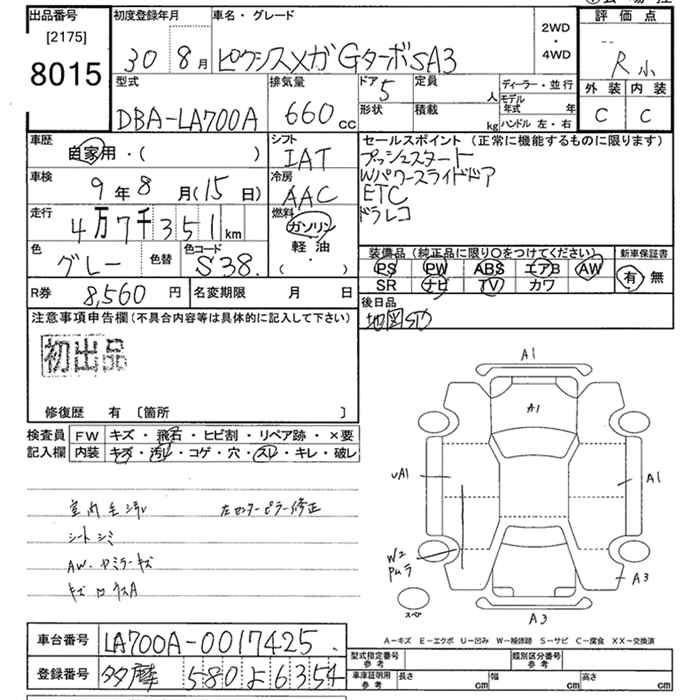 出品番号
[2175]
8015
初度登録年月
30 8月
車名・グレード
ピクシスメガ GターボSA3
2WD
・
4WD
評価点
R 小
外装 内装
C C
型式
DBA-LA700A
排気量
660 cc
ドア 5
形状
定員 人
積載 kg
ディーラー・並行
モデル年式 年
ハンドル 左・右
車歴
自家用・( )
車検
9年8月(15日)
走行
4万7千351km
色
グレー 色替
色コード
S38.
シフト
IAT
冷房
AAC
燃料
ガソリン
・
軽油
・
( )
セールスポイント(正常に機能するものに限ります)
プッシュスタート
Wパワースライドドア
ETC
ドラレコ
装備品(純正品に限り○をつけてください)
PS PW ABS エアB AW
SR ナビ TV カワ
新車保証書
有 無
後日品
地図SD
R券 8,560円
名変期限 月 日
注意事項申告欄(不具合内容等は具体的に記入して下さい)
初出品
修復歴 有 〔箇所 〕
検査員記入欄
FW キズ・飛石・ヒビ割・リペア跡・×要
内装 キズ・汚レ・コゲ・穴・スレ・キレ・破レ
室内毛汚レ 左センターピラー修正
シートシミ
AW・ヤミラーキズ
A1
A1
UA1
A1
W2
A3
A3
スペア
A-キズ E-エクボ U-凹み W-補修跡 S-サビ C-腐食 XX-交換済
車台番号
LA700A-0017425.
登録番号
多摩 580 よ 6354
型式指定番号 参考
類別区分番号 参考
車庫証明用 参考
長さ cm
幅 cm
高さ cm